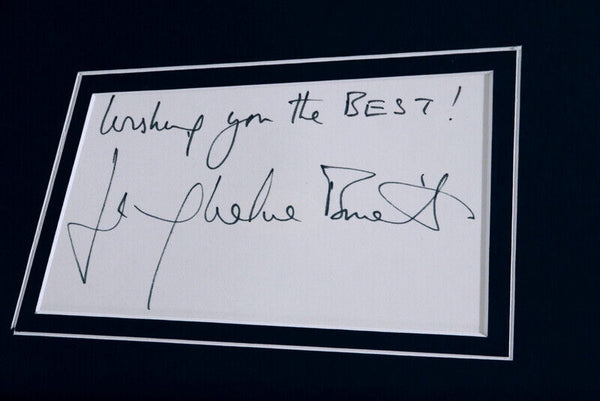 Wishing you the BEST!
Jacqueline Bisset